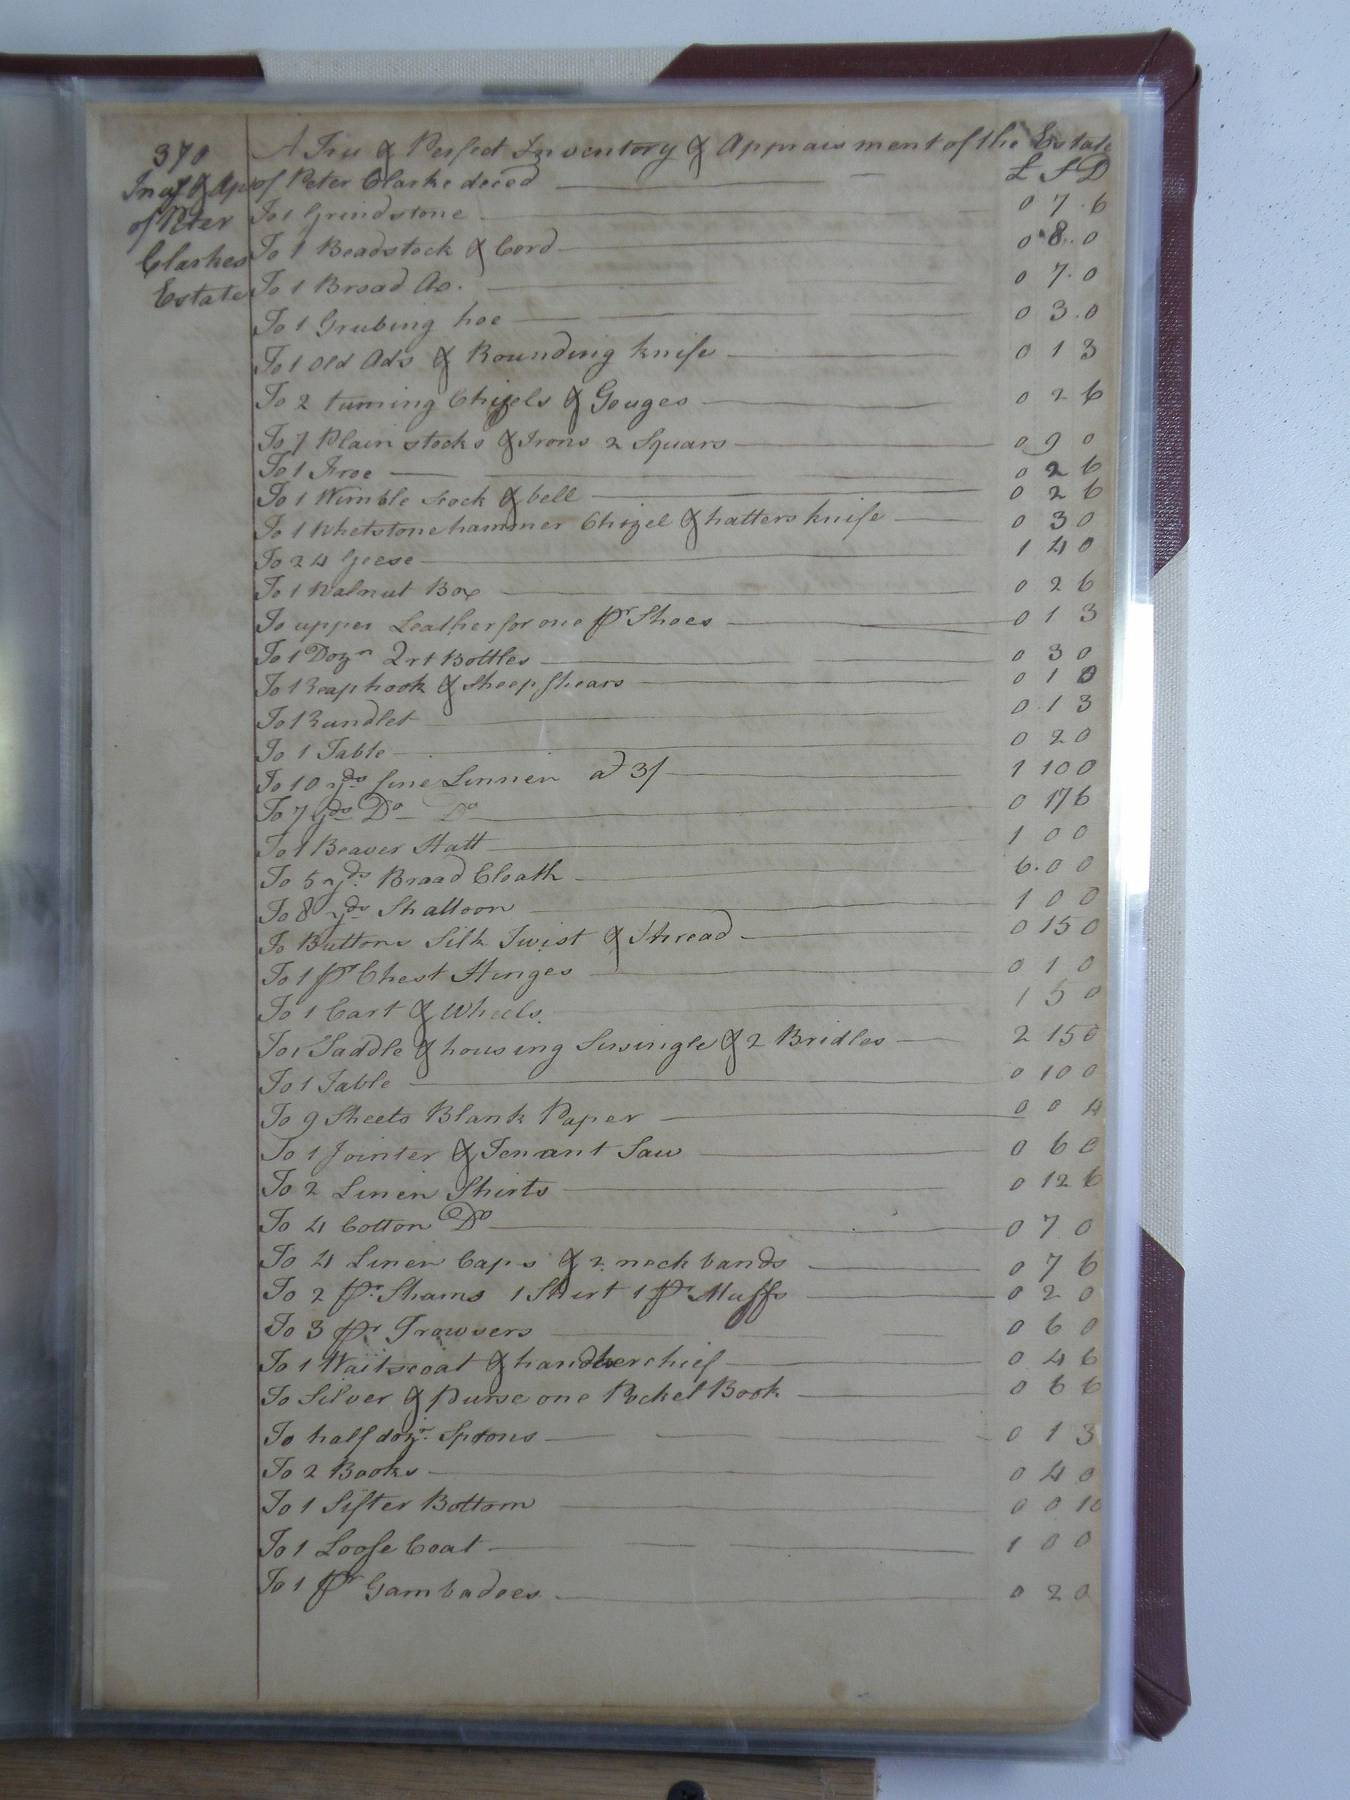 370
Invy & Apt
of Peter
Clarkes
Estate
A True & Perfect Inventory & Appraisment of the Estate
of Peter Clarke deced £ S D
To 1 Grindstone 0 7.6
To 1 Beadstock & Cord 0 8.0
To 1 Broad Ax. 0 7.0
To 1 Grubing hoe 0 3.0
To 1 Old Ads & Rounding knife 0 1 3
To 2 turning Chizels & Gouges 0 2 6
To 7 Plain stocks & Irons 2 Squars 0 9 0
To 1 Froe 0 2 6
To 1 Wimble Stock & bell 0 2 6
To 1 Whetstone hammer Chizel & hatters knife 0 3 0
To 24 Geese 1 4 0
To 1 Walnut Box 0 2 6
To upper Leather for one pr Shoes 0 1 3
To 1 Dozn Qrt Bottles 0 3 0
To 1 Reaphook & Sheep Shears 0 1
To 1 Rundlet 0 1 3
To 1 Table 0 2 0
To 10 yds fine Linnen at 3/ 1 10 0
To 7 yds Do Do 0 17 6
To 1 Beaver Hatt 1 0 0
To 5 yds. Broad Cloath 6.0 0
To 8 yds Shalloon 1 0 0
To Buttons Silk Twist & Thread 0 15 0
To 1 pr Chest Hinges 0 1 0
To 1 Cart & Wheels. 1 5 0
To 1 Saddle & housing Sursingle & 2 Bridles 2 15 0
To 1 Table 0 10 0
To 9 Sheets Blank Paper 0 0 4
To 1 Jointer & Tennant Saw 0 6 0
To 2 Linen Shirts 0 12 6
To 4 Cotton Do 0 7 0
To 4 Linen Caps & 2 neck bands 0 7 6
To 2 pr. Shams 1 Shirt 1 pr Muffs 0 2 0
To 3 pr Trowsers 0 6 0
To 1 Waitscoat & handkerchief 0 4 6
To Silver & purse one Pocket Book 0 6 6
To half dozn. Spoons 0 1 3
To 2 Books 0 4 0
To 1 Sifter Bottom 0 0 10
To 1 Loose Coat 1 0 0
To 1 pr Gambadoes 0 2 0